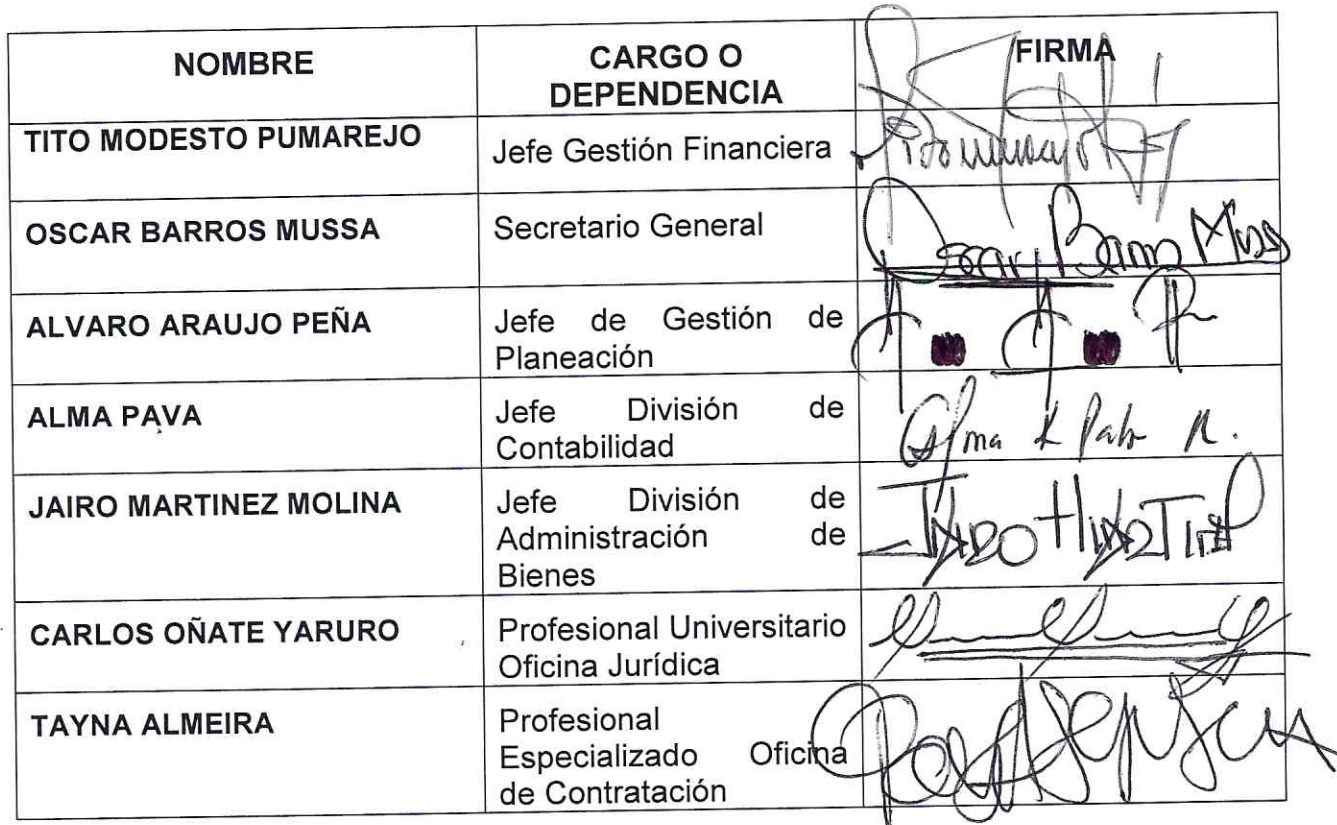 NOMBRE
CARGO O
DEPENDENCIA
FIRMA
TITO MODESTO PUMAREJO
Jefe Gestión Financiera
OSCAR BARROS MUSSA
Secretario General
Oscar Barros Muss
ALVARO ARAUJO PEÑA
Jefe de Gestión de
Planeación
ALMA PAVA
Jefe División de
Contabilidad
Alma K
JAIRO MARTINEZ MOLINA
Jefe División de
Administración de
Bienes
CARLOS OÑATE YARURO
Profesional Universitario
Oficina Jurídica
TAYNA ALMEIRA
Profesional
Especializado Oficina
de Contratación